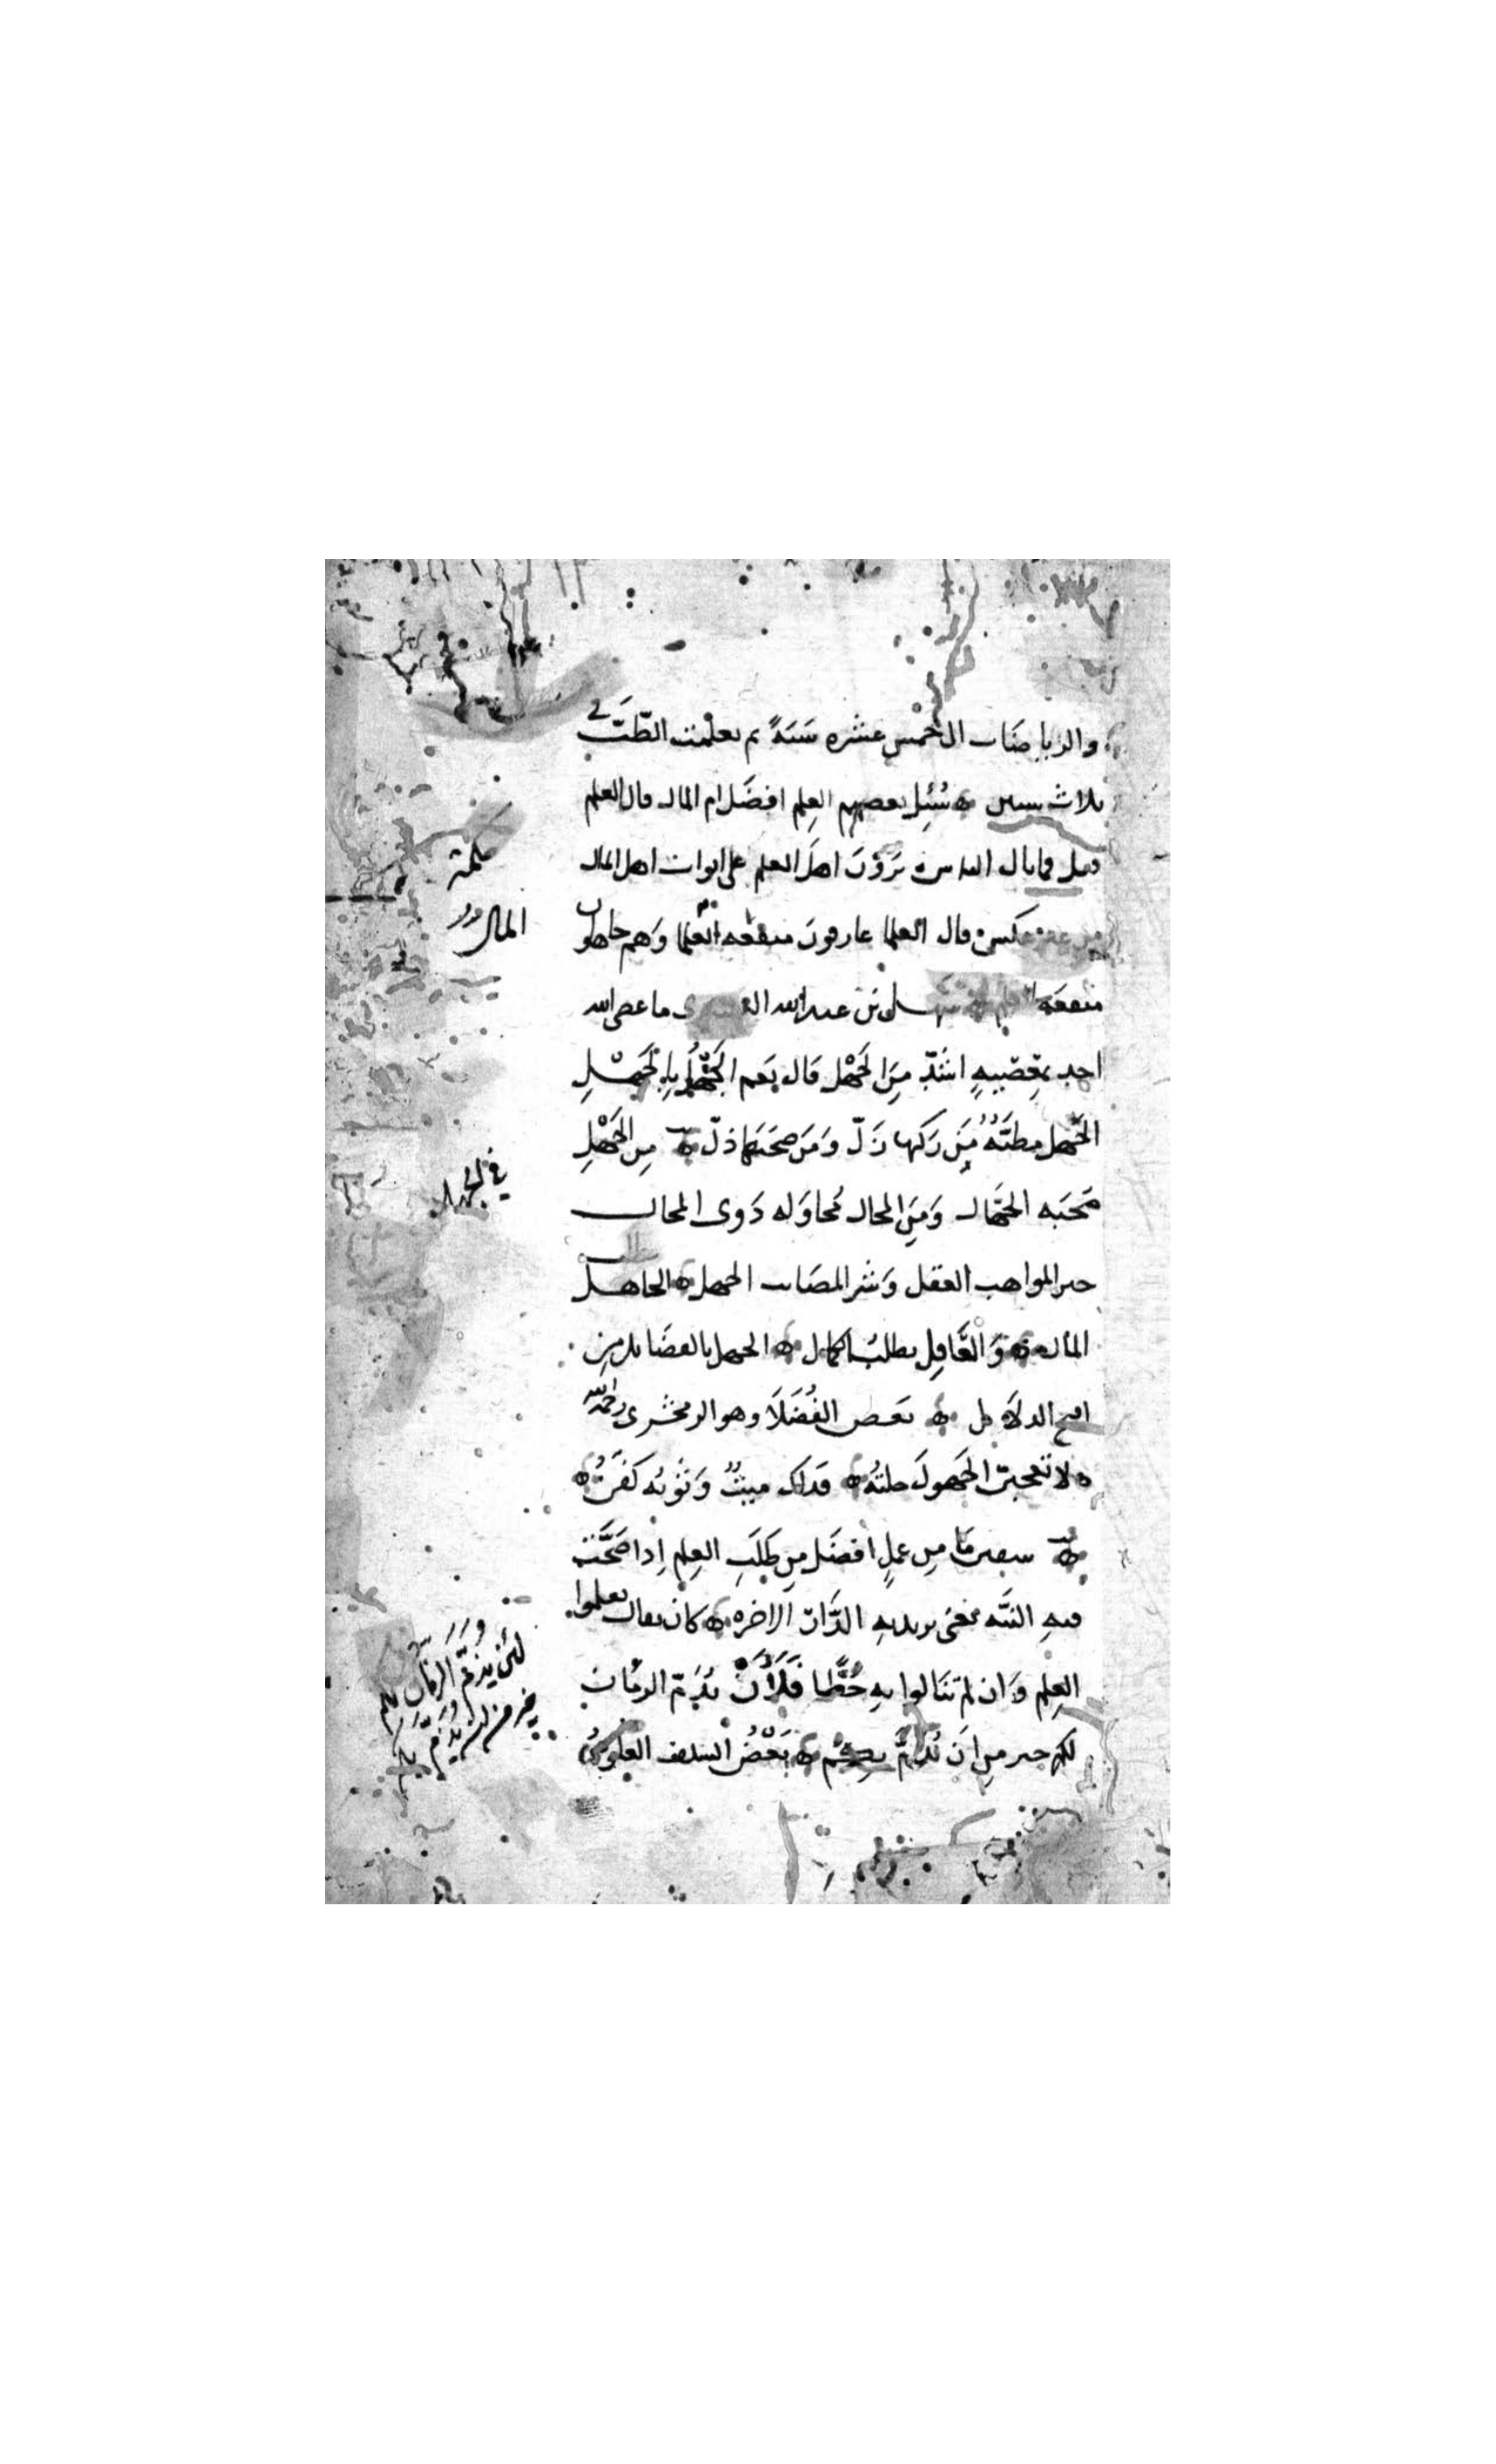 والرياضات الى خمس عشره سنة ثم تعلمت الطب في
ثلاث سنين سئل بعضهم العلم افضل ام المال قال العلم
قيل فما بال الناس يرون اهل العلم على ابواب اهل المال
عكس قال العلما عارفون منفعه المال وهم جاهلون
منفعه العلم سهل بن عبد الله التستري ما عصى الله
احد بمعصيه اشد من الجهل قال نعم الجهل بالجهل
الجهل مطيه من ركبها زل ومن صحبها ذل من الجهل
صحبه الجهال ومن المحال محاوله ذوى المحال
خير المواهب العقل وشر المصائب الجهل الجاهل يطلب
المال والعاقل يطلب الكمال الجهل بالفضائل من
اقبح الرذائل بعض الفضلا وهو الزمخشرى رحمه الله
لا تعجبن الجهول حلته فذاك ميت وثوبه كفن
سفين ما من عمل افضل من طلب العلم اذا صحت
فيه النيه يعنى يريد به الدار الاخره كان يقال تعلموا
العلم وان لم تنالوا به حظا فلأن يذم الزمان
لكم خير من ان يذم بكم بعض السلف العلوم
حكمة
المال
في الجهل
لئن يذم الزمان لكم
خير من ان يذم بكم